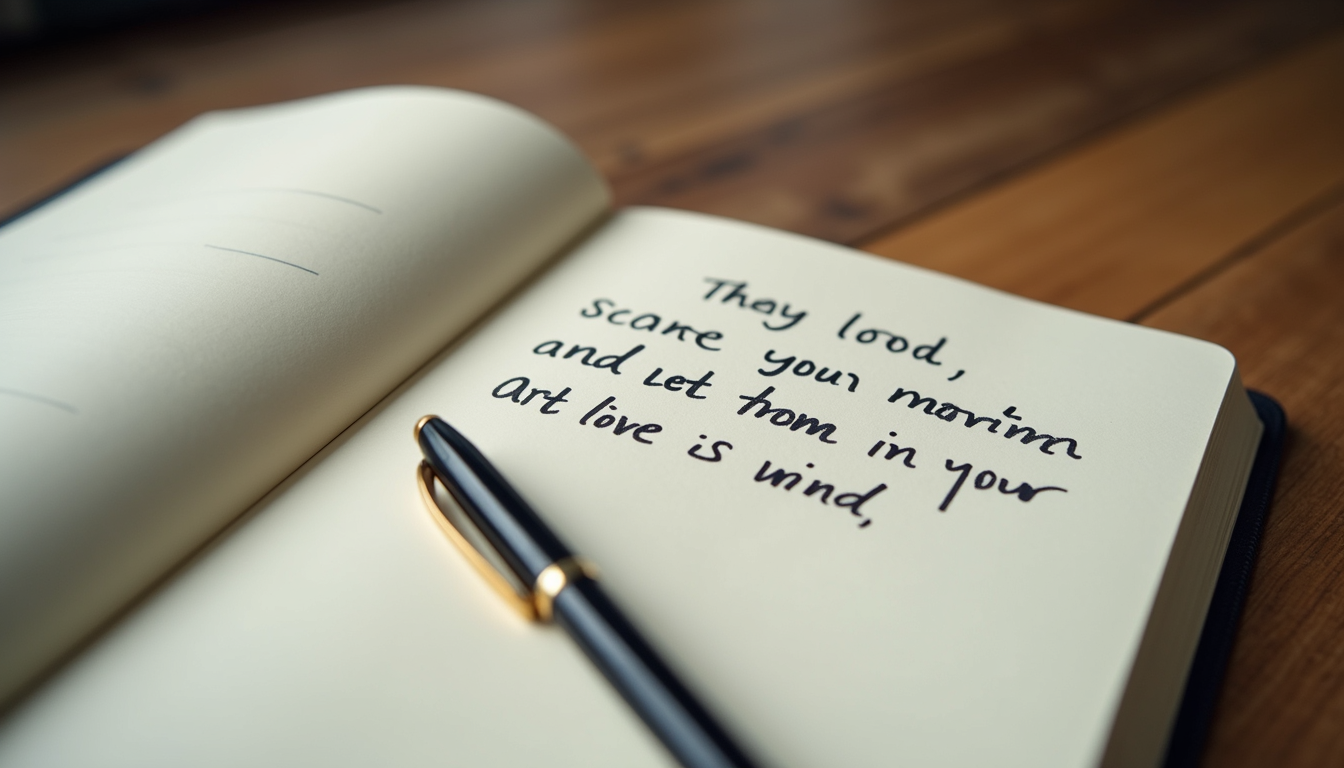 They lood,
scare your
and Let from in your
Art love is mind,